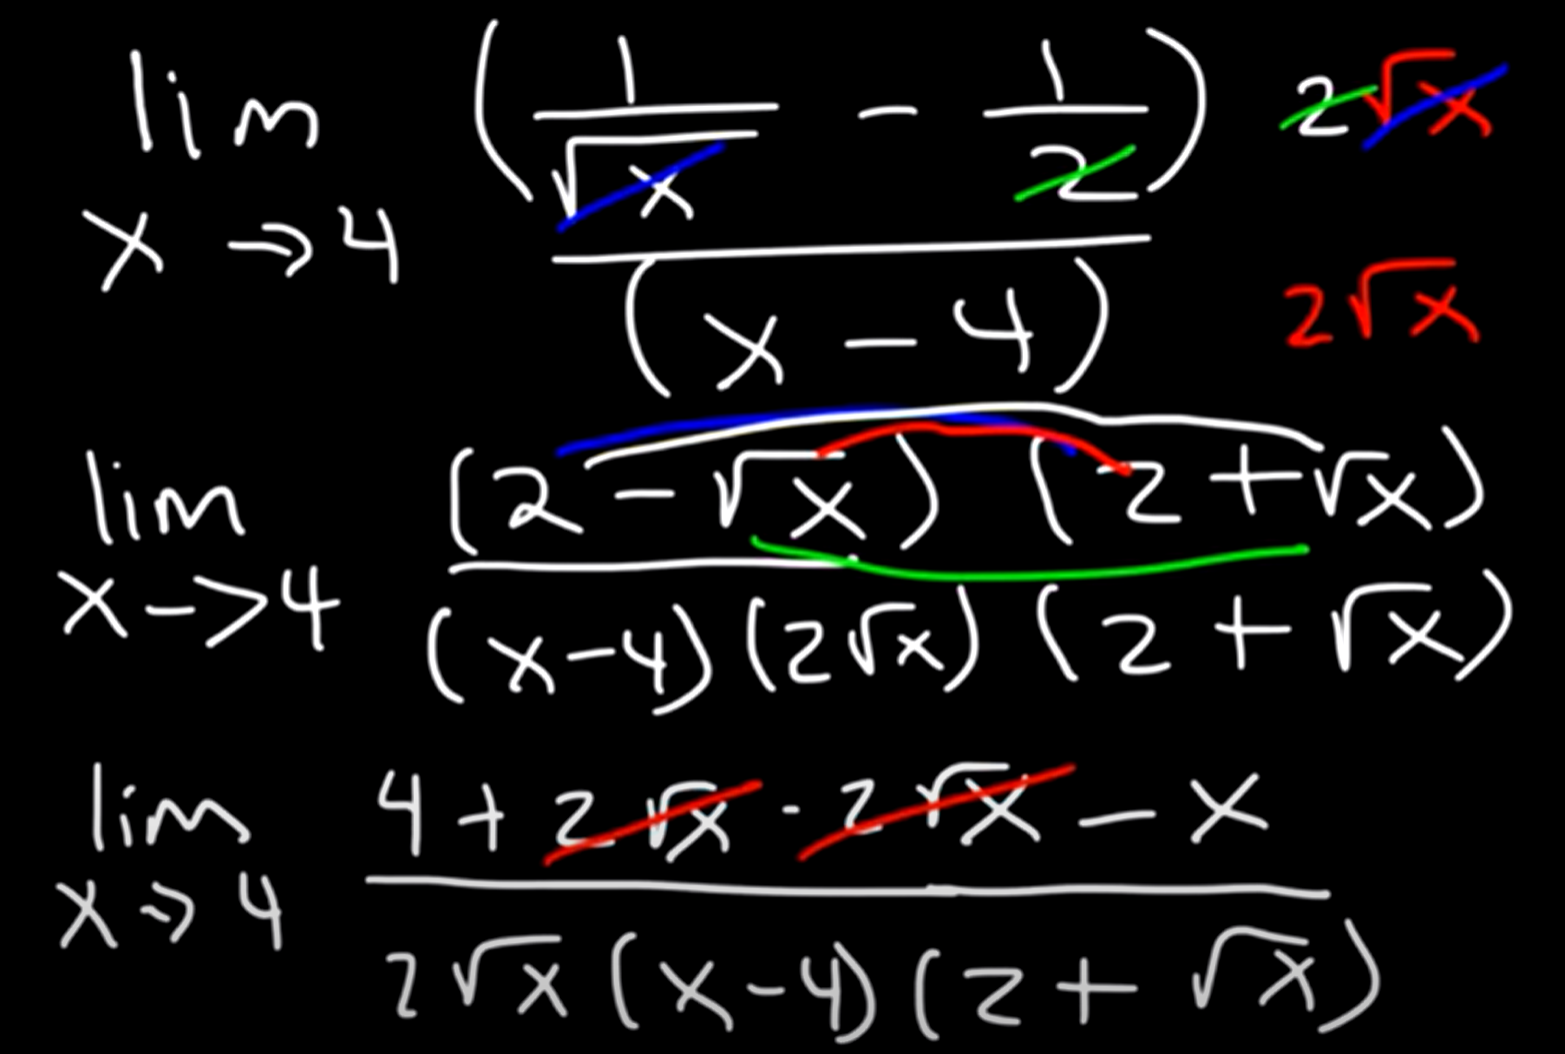 lim x→4 (1/√x − 1/2) 2√x
(x − 4) 2√x
lim x→4 (2 − √x) (2 + √x)
(x−4) (2√x) (2 + √x)
lim x→4 4 + 2√x - 2√x − x
2√x (x−4) (2 + √x)